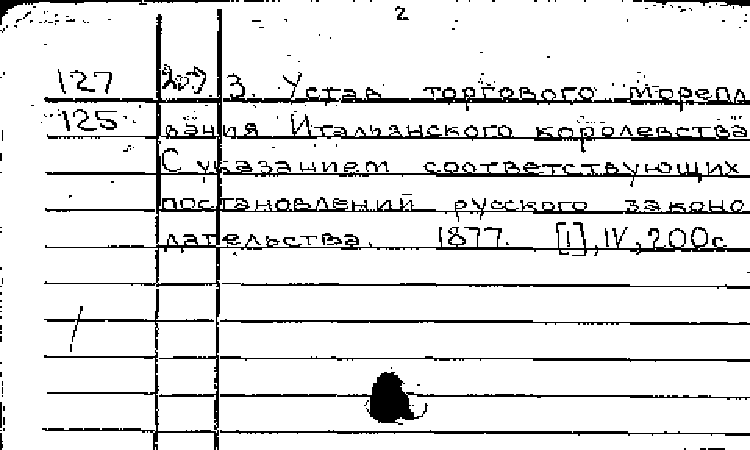 2
127 3. Устав торгового Морепл
125 вания Итальянского королевства
С указанием соответствующих
постановлений русского законо
дательства. 1877. [1], IV, 200с